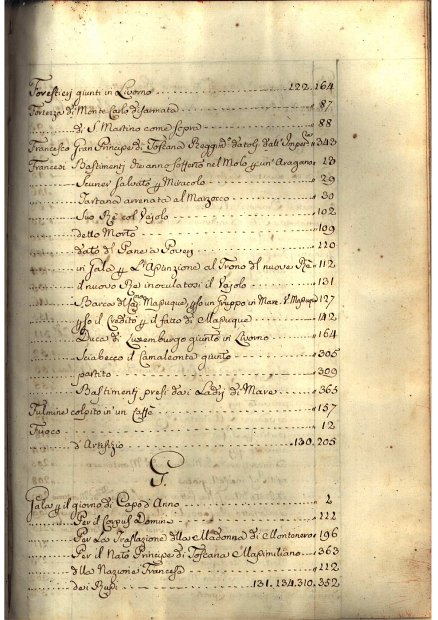 Forestieri giunti in Livorno ........ 122.164
Fortezza di Monte Carlo disarmata ........ 87
di S. Martino come sopra ........ 88
Francesco Gran Principe di Toscana Regg: datoli dall' Imper: 343
Francesi Bastimenti che anno sofferto nel Molo p un' Aragano 13
Scuner salvato p Miracolo ........ 29
Tartana arrenata al Marzocco ........ 30
Suo Re col Vajolo ........ 102
detto Morto ........ 109
dato del Pane a Poveri ........ 110
in Gala p L'Assunzione al Trono del nuovo Re 112
il nuovo Re inoculatosi il Vajolo ........ 131
Barca di Cap Masuque un Gruppo in Mare V. Masuque 127
p il Credito p il fatto di Masuque ........ 142
Duca di Luxemburgo giunto in Livorno ........ 164
Sciabecco il Camaleonta giunto ........ 305
partito ........ 309
Bastimenti presi dai Ladri di Mare ........ 365
Fulmine colpito in'un Caffè ........ 157
Fuoco ........ 12
d'Artifizio ........ 130.205
G.
Gala p il giorno di Capo d'Anno ........ 2
Per il Corpus Domine ........ 111
Per La Traslazione della Madonna di Montenero 196
Per il Nato Principe di Toscana Massimiliano ........ 363
della Nazione Francese ........ 112
dei Russi ........ 131.134.310.352